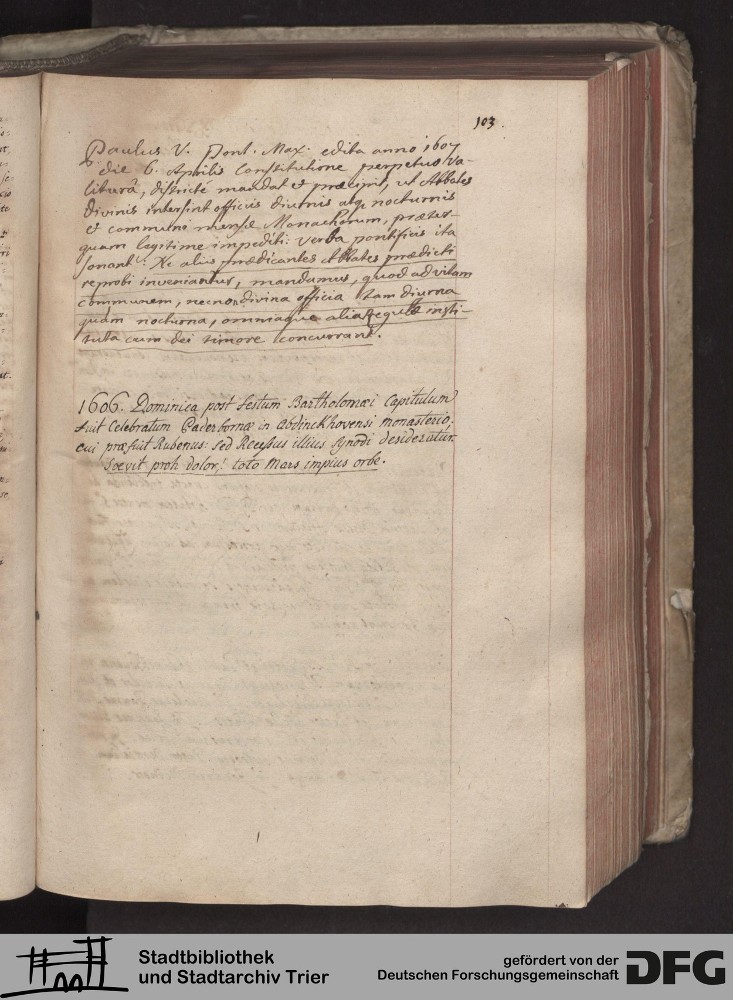 103.
Paulus V. Pont. Max. edita anno 1607
die 6. Aprilis Constitutione perpetuo va-
liturâ, districtè mandat et præcipit, ut Abbates
divinis intersint officiis diurnis atq; nocturnis
et communi mensæ Monachorum, præter-
quam legitime impediti: verba pontificis ita
sonant: Ne aliis prædicantes Abbates prædicti
reprobi inveniantur, mandamus, quod ad vitam
communem, necnon divina officia tam diurna
quàm nocturna, omniaque alia Regulæ insti-
tuta cum dei timore concurrant.
1606. Dominica post festum Bartholomæi Capitulum
fuit Celebratum Paderbornæ in Abdinckhovensi monasterio,
cui præfuit Rubenus: sed Recessus illius synodi desideratur.
Sævit proh dolor! toto Mars impius orbe.
Stadtbibliothek
und Stadtarchiv Trier
gefördert von der
Deutschen Forschungsgemeinschaft
DFG